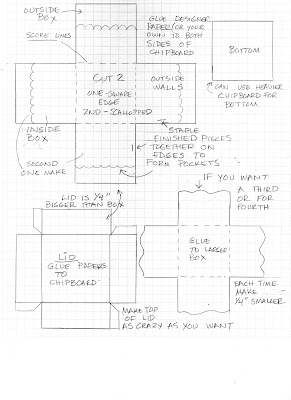 OUTSIDE
BOX
SCORE LINES
GLUE DESIGNER
PAPER/OR YOUR
OWN TO BOTH
SIDES OF
CHIPBOARD
BOTTOM
CUT 2
ONE-SQUARE
EDGE
2ND-SCALLOPED
OUTSIDE
WALLS
CAN USE HEAVIER
CHIPBOARD FOR
BOTTOM
INSIDE
BOX
SECOND
ONE MAKE
STAPLE
FINISHED PIECES
TOGETHER ON
EDGES TO
FORM POCKETS
LID IS 1/4"
BIGGER THAN BOX
IF YOU WANT
A THIRD
OR FOR
FOURTH
LID
GLUE PAPERS
TO
CHIPBOARD
GLUE
TO LARGER
BOX
EACH TIME
MAKE
1/4" SMALLER
MAKE TOP
OF LID
AS CRAZY AS YOU WANT